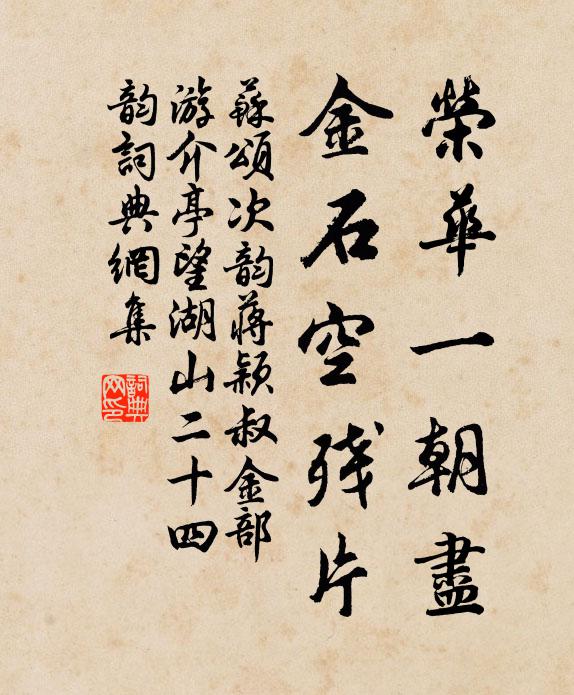 榮華一朝盡
金石空残片
蘇頌次韵蔣穎叔金部
游介亭望湖山二十四
韵詞典網集
詞典网印